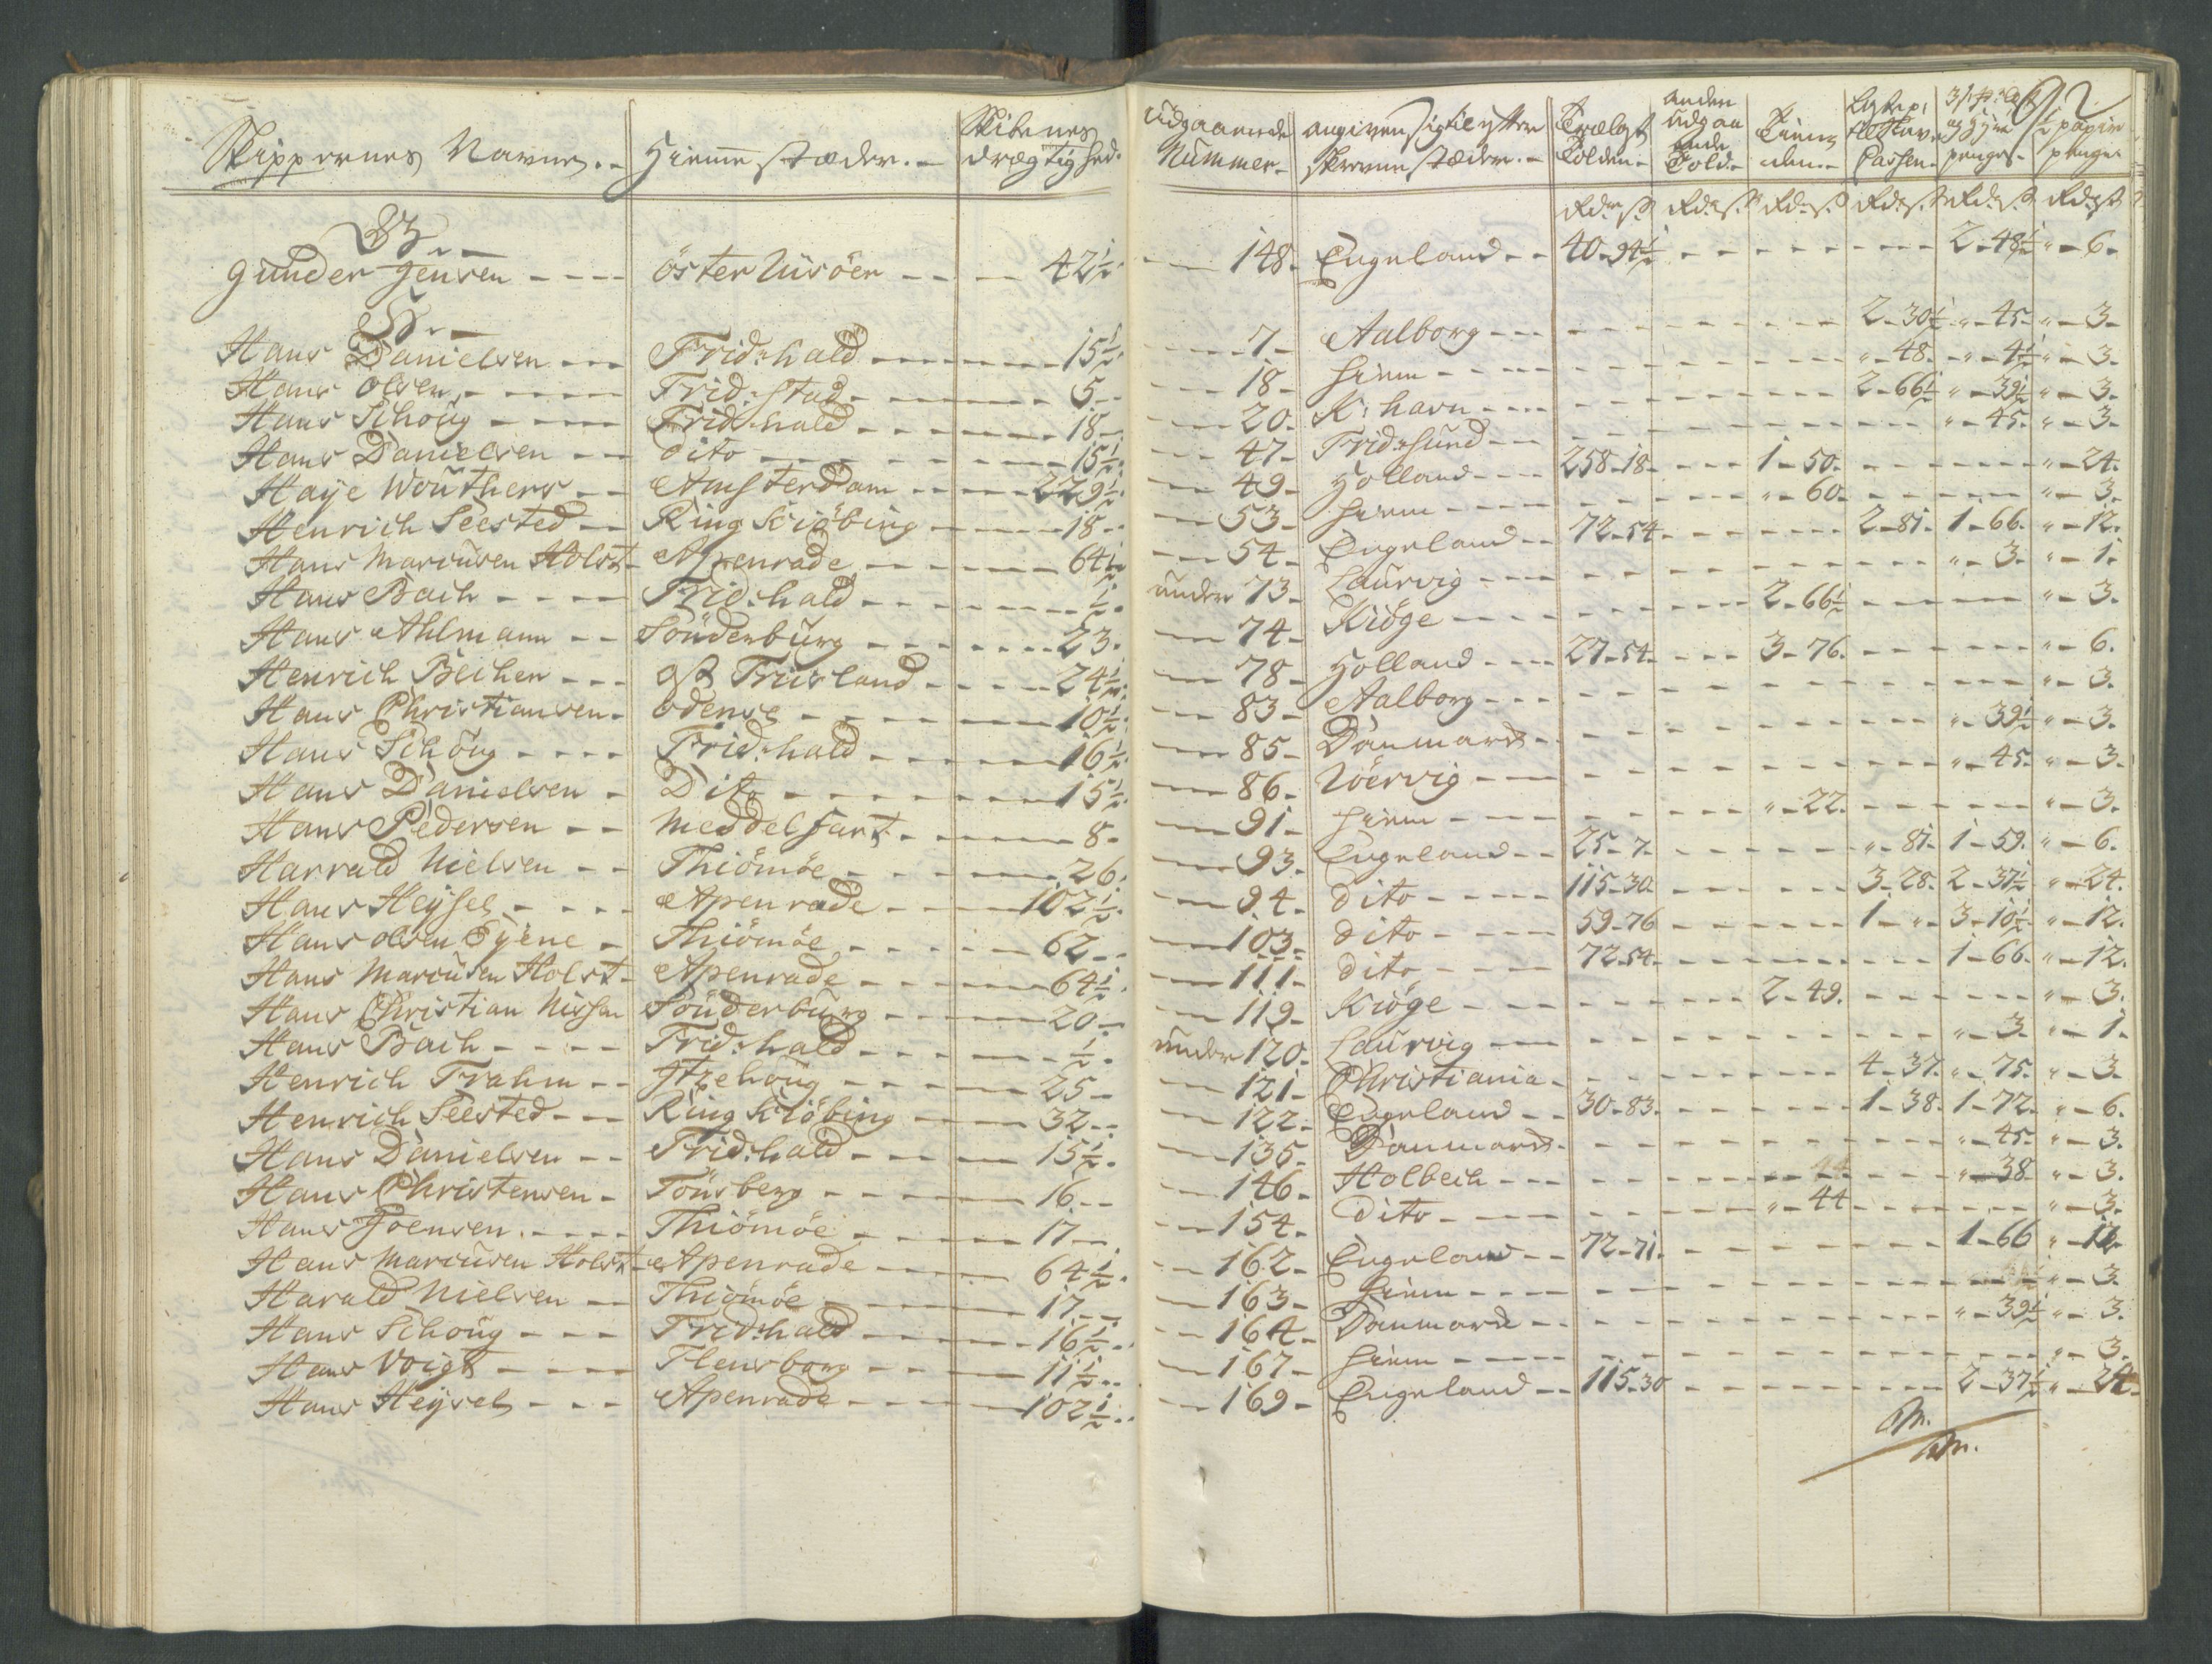 Skippernes Navne.- Hiemme stæder.- Skibenes drægtighed. udgaaende Nummer- angiven sig til efter skrevne stæder.- Trælast Tolden- anden udgaaende Told- Tienden.- Passen- penge- papir penge
Rdr. s. Rdr. s. Rdr. s. Rdr. s. Rdr. s. Rdr. s.
G.
Gunder Jensen - - - - öster Riisöer - - - 42½ 148. Engeland - - 40-94½ - - - 2-48½ "-6-
H.
Hans Danielsen - - - Frid:hald - - - 15½ 7- Aalborg - - - 2-30½ "-45- "-3-
Hans Olsen - - - Frid:stad - - - 5- 18- hiem - - - "-48. "-4½ "-3.
Hans Schoug - - - Frid:hald - - - 18- 20- K:havn - - - 2-66½ "-39½ "-3.
Hans Danielsen - - dito - - - 15½ 47- Frid:sund - - - "-45. "-3.
Haye Wouthers - - Amsterdam - - - 229½ 49- Holland - - - 258-18- 1-50. "-24.
Henrich Seested - - Ring Kiöbing - - - 18- 53- hiem - - - "-60. "-3.
Hans Marcusen Holst - Apenrade - - - 64½ 54- Engeland - - 72-54- 2-81. 1-66. "-12.
Hans Bach - - - Frid:hald - - - ½. under 73- Laurvig - - - "-3. "-1.
Hans Ahlmann - - Sönderburg - - - 23. 74- Kiöge - - - 2-66½ "-3.
Henrich Beiher - - - Ost Friisland - - - 24½ 78- Holland - - - 27-54. 3-76. "-6.
Hans Christiansen - Odense - - - 10½ 83- Aalborg - - - "-3.
Hans Schoug - - - Frid:hald - - - 16½ 85- Danmark - - "-39½ "-3.
Hans Danielsen - Dito - - - 15½ 86- Röervig - - - "-45. "-3.
Hans Pedersen - - Meddelfart - - - 8- 91- hiem - - - "-22. "-3.
Harrald Nielsen - - Thiömöe - - - 26. 93. Engeland - - 25-7. "-81. 1-59. "-6.
Hans Heysel - - - Apenrade - - - 102½ 94- dito - - - 115-30 3-28. 2-37½ "-24.
Hans Olsen - Thiömöe - - - 62 - - 103- dito - - - 59-76 1-". 3-10½ "-12.
Hans Marcusen Holst - Apenrade - - - 64½ 111- dito - - - 72-54. 1-66. "-12.
Hans Christian Nissen Sönderburg - - - 20- 119- Kiöge - - - 2-49. "-3.
Hans Bach - - - Frid:hald - - - ½. under 120- Laurvig - - - "-3. "-1.
Henrich Frahm - - Itzehöug - - - 25- 121- Christiania - 4-37. "-75. "-3.
Henrich Seested - - - Ring Kiöbing - - - 32 - - 122- Engeland - - 30-83. 1-38. 1-72. "-6.
Hans Danielsen - - Frid:hald - - - 15½. 135- Danmark - - "-45. "-3.
Hans Christensen - Tönsberg - - - 16 - - 146- Holbech - - - "-38 "-3.
Hans Joensen - - - Thiömöe - - - 17- 154- dito - - - "-44 "-3.
Hans Marcusen Holst - Apenrade - - - 64½. 162- Engeland - - 72-71. 1-66 "-12
Harald Nielsen - - Thiömöe - - - 17- 163- hiem - - - "-3.
Hans Schoug - - - Frid:hald - - - 16½ 164- Danmark - - "-39½ "-3.
Hans Voigt - - - Flensborg - - - 11½ - - 167- hiem - - - "-3.
Hans Heysel - - - Apenrade - - - 102½ 169- Engeland - - 115-30 2-37½ "-24.